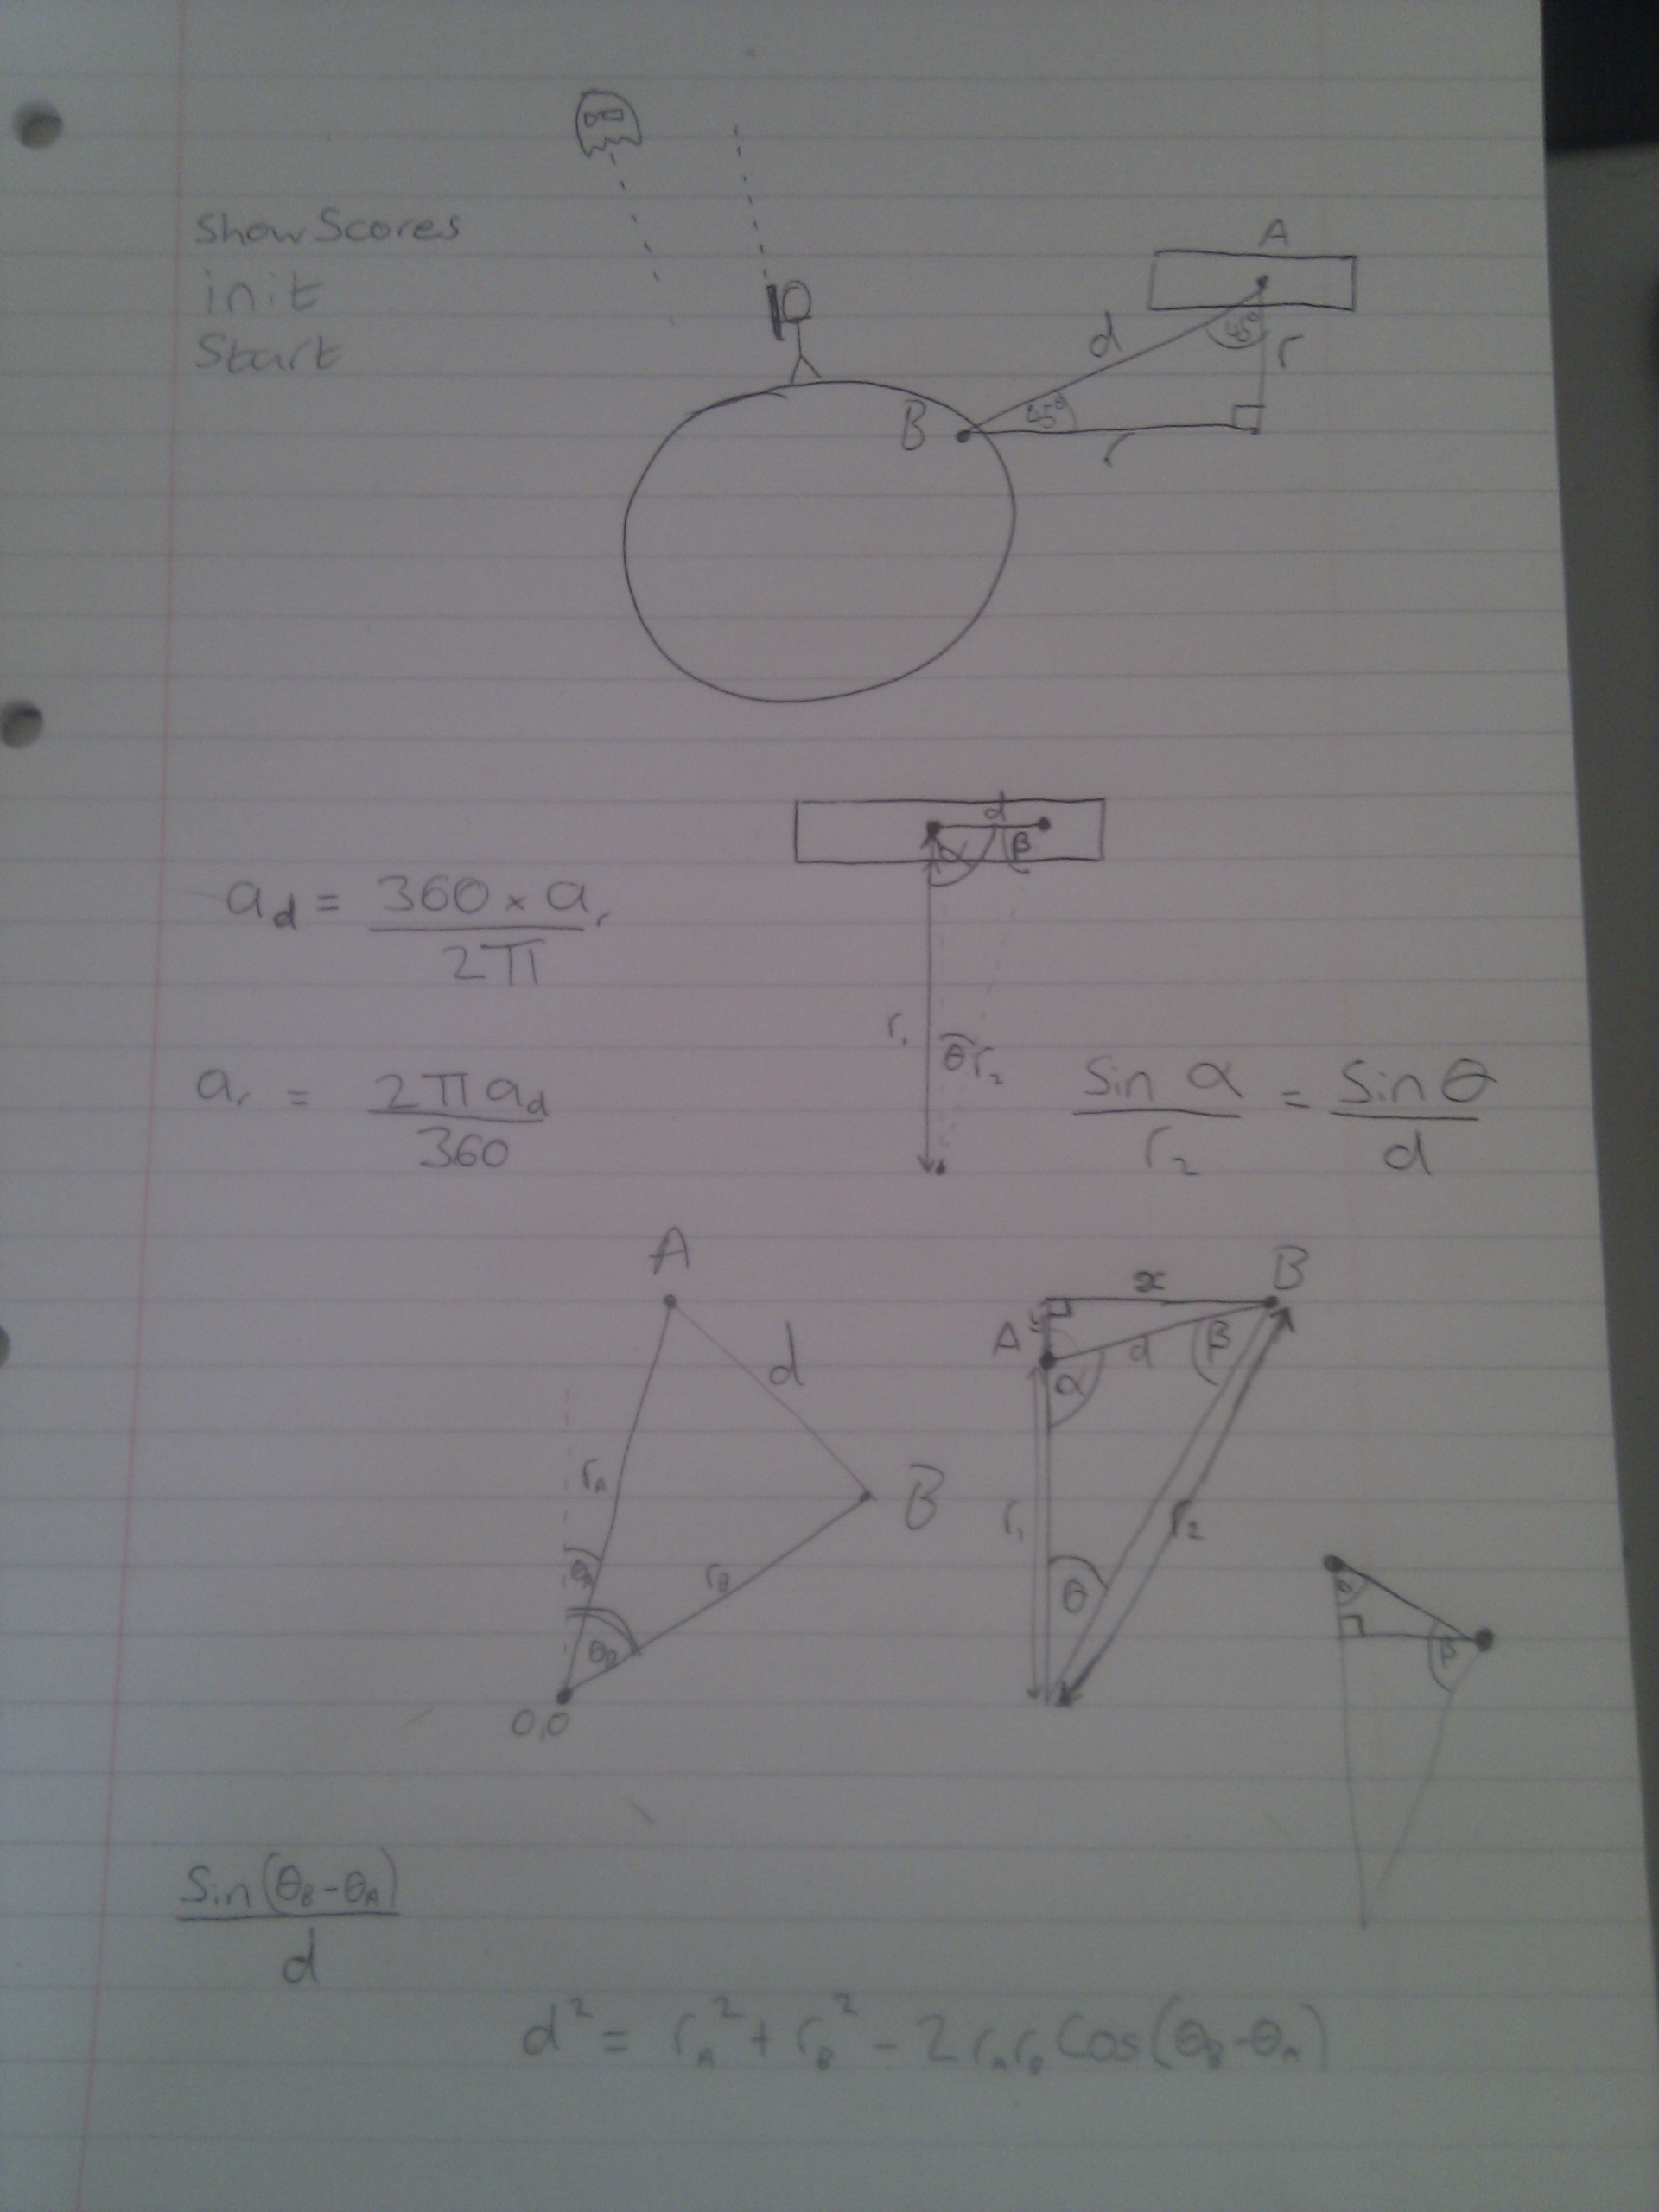 showScores
init
Start
A
d
45°
r
B
45°
r
d
α
β
a_d = 360 × a_r / 2π
r₁
θ
r₂
a_r = 2π a_d / 360
Sin α / r₂ = Sin θ / d
A
d
B
r_A
r_B
θ_A
θ_B
0,0
x
B
A
y
d
β
α
r₁
r₂
θ
α
β
Sin(θ_B - θ_A) / d
d² = r_A² + r_B² - 2 r_A r_B Cos(θ_B - θ_A)